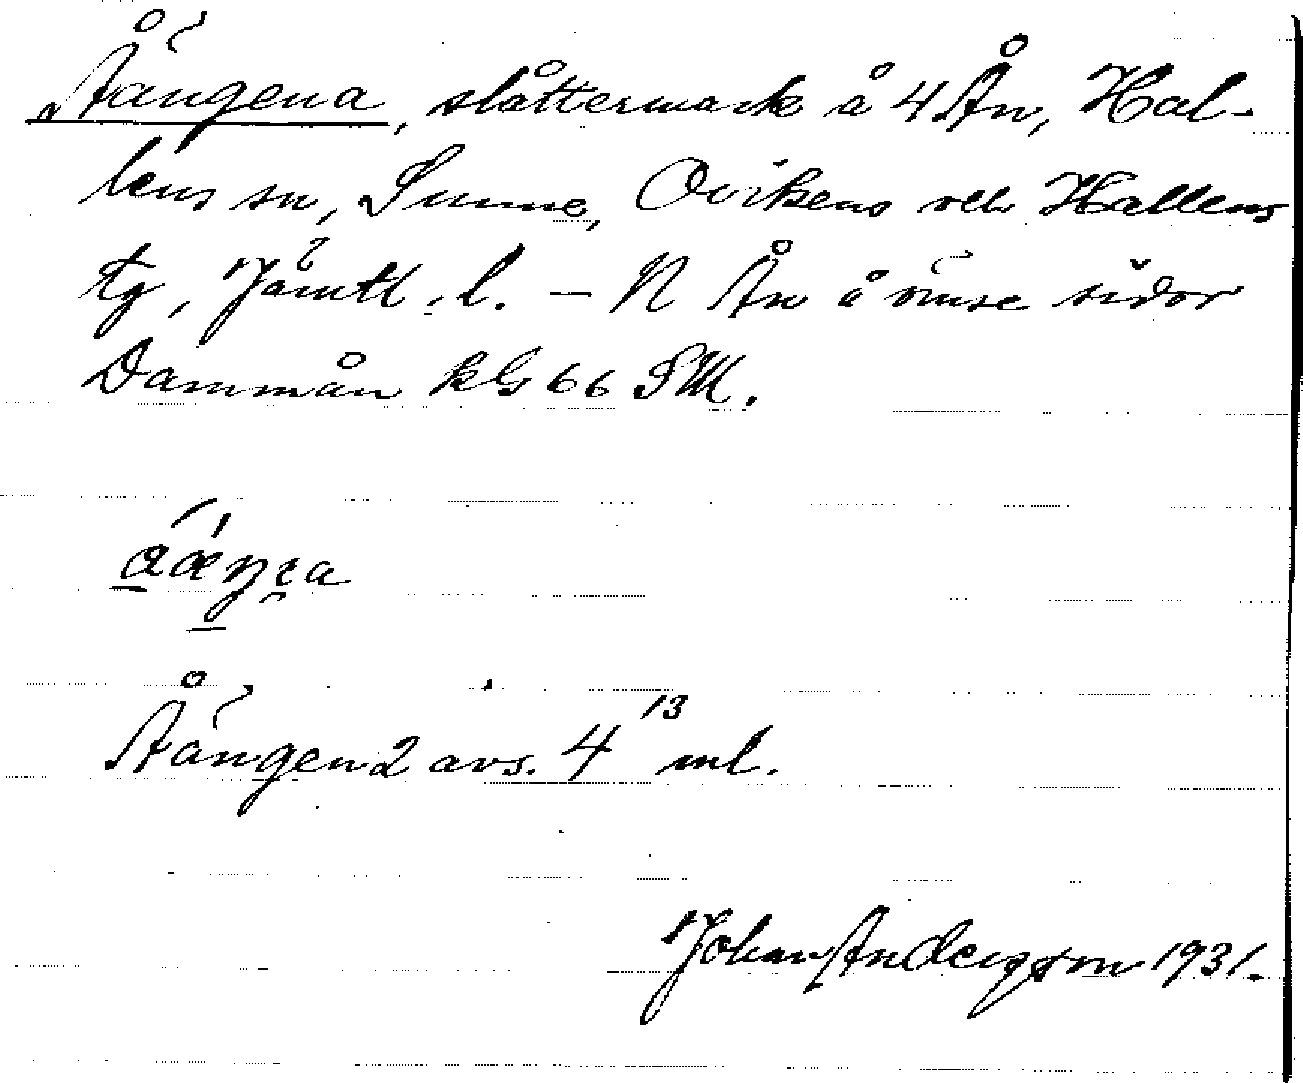 Åängena, slåttermark å 4 Ån, Hal-
lens sn, Sunne, Ovikens och Hallens
tg, Jämtl. l. — N Ån å ömse sidor
Dammån kG 66 SM.
Åängen 2 avs. 4 13 ml.
Johan Andersson 1931.